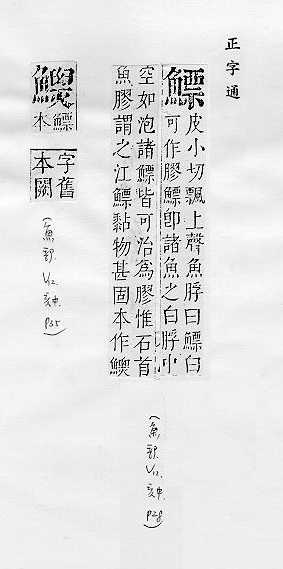 正字通
鰾
皮小切飄上聲魚脬曰鰾白
可作膠鰾卽諸魚之白脬中
空如泡諸鰾皆可治為膠惟石首
魚膠謂之江鰾黏物甚固本作
(魚部, V12, 亥中, P28)
鰾
本
字舊
本闕
(魚部, V12, 亥中, P35)